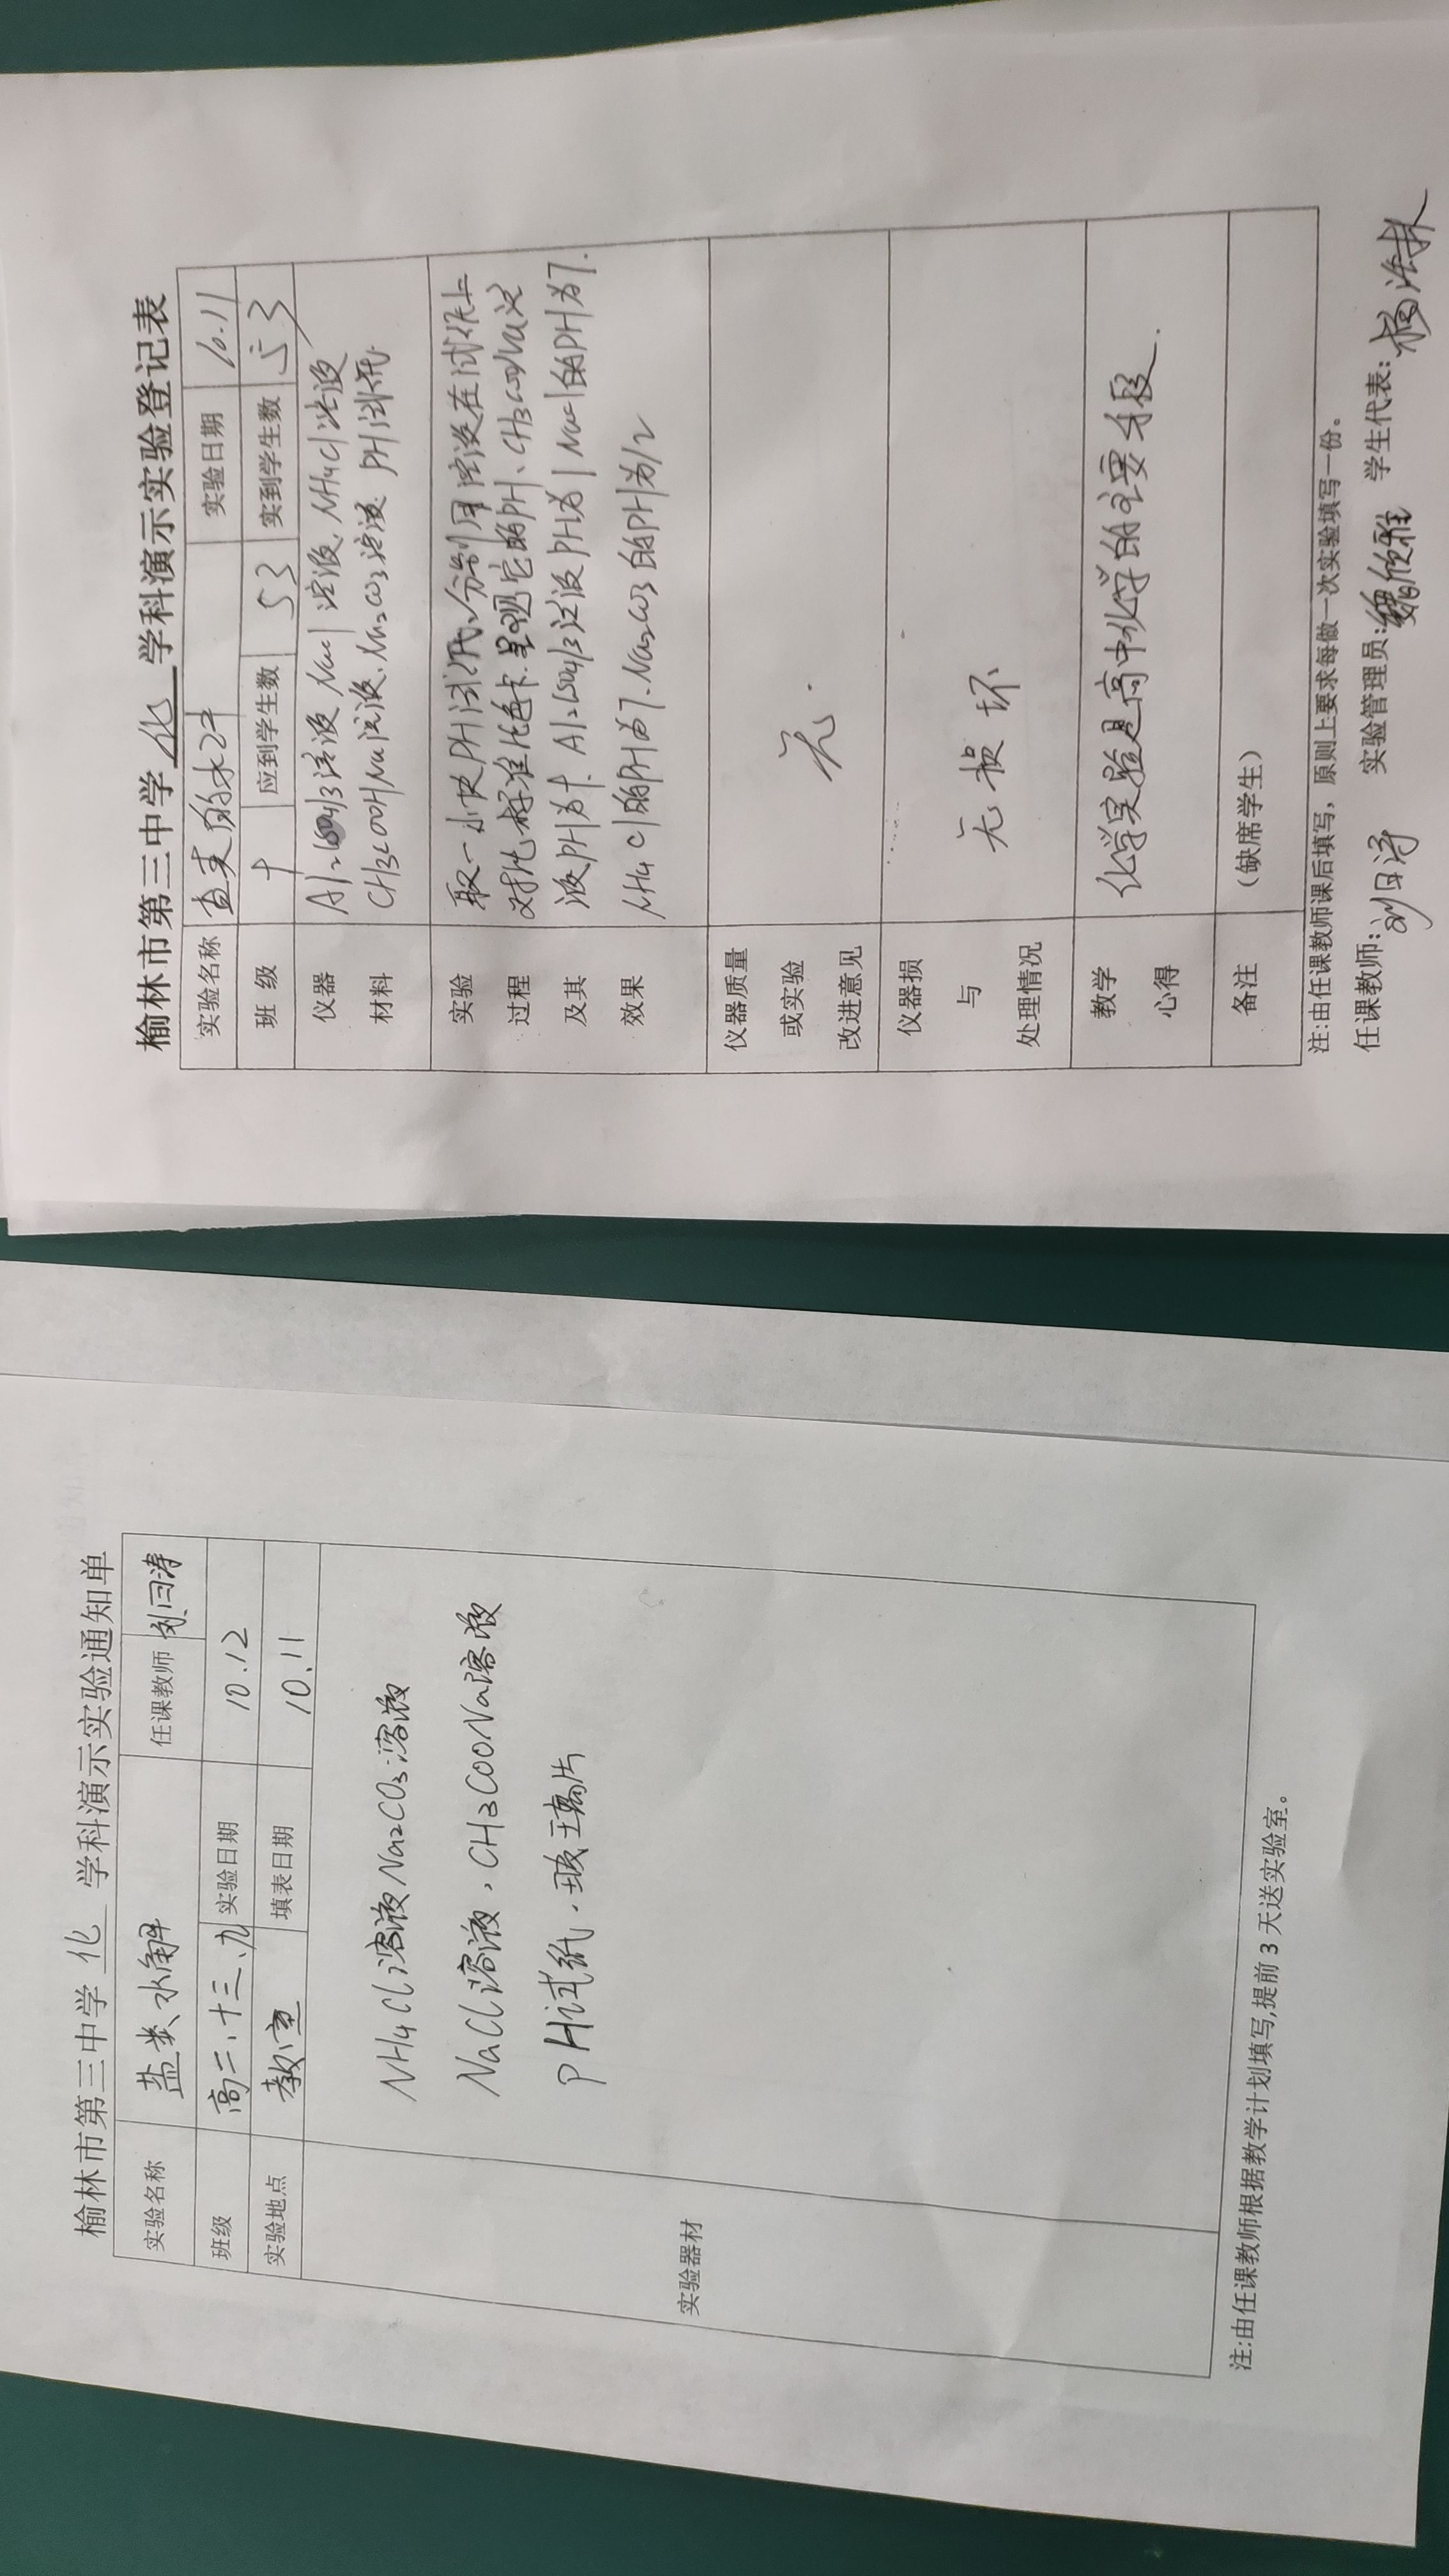 榆林市第三中学 化 学科演示实验通知单
实验名称 盐类水解 任课教师 刘闩涛
班级 高二、十三、九 实验日期 10.12
实验地点 教室 填表日期 10.11
实验器材
NH4Cl溶液 Na2CO3溶液
NaCl溶液、CH3COONa溶液
PH试纸、玻璃片
注:由任课教师根据教学计划填写,提前 3 天送实验室。
榆林市第三中学 化 学科演示实验登记表
实验名称 盐类的水 实验日期 10.11
班 级 十 应到学生数 53 实到学生数 53
仪器 材料
Al2(SO4)3溶液 NaCl溶液、NH4Cl溶液
CH3COOHNa溶液、Na2CO3溶液 PH试纸
实验 过程 及其 效果
取一小块PH试纸、分别用溶液在试纸上
对比标准比色卡 它的PH、CH3COONa溶
液PH为 Al2(SO4)3溶液PH为1 NaCl的PH为7.
NH4Cl的PH为7、Na2CO3的PH为12
仪器质量 或实验 改进意见
无.
仪器损 与 处理情况
无损坏
教学 心得
化学实验是高中化学的主要手段.
备注 (缺席学生)
注:由任课教师课后填写，原则上要求每做一次实验填写一份。
任课教师: 实验管理员: 魏欣雅 学生代表: 杨